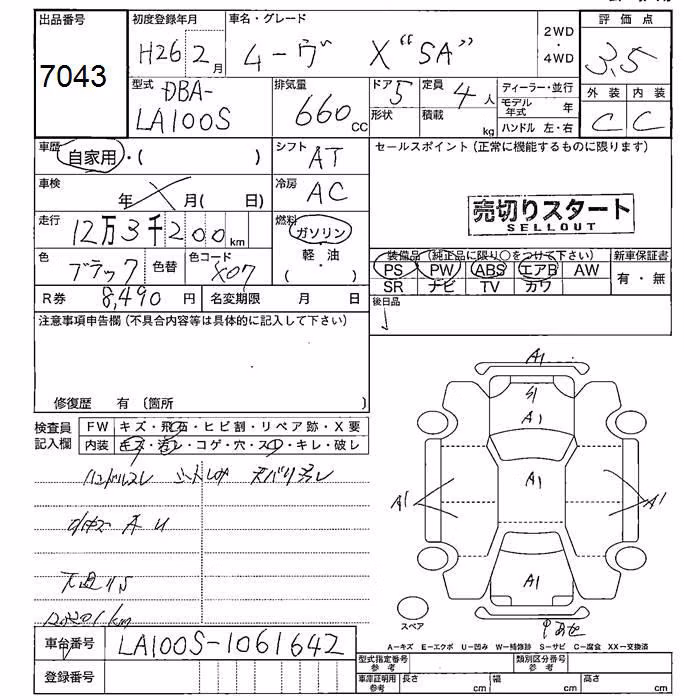 出品番号 初度登録年月 車名・グレード 2WD・4WD 評価点
7043 H26 2月 ムーヴ X "SA" 3.5
型式 排気量 ドア 形状 定員 積載 ディーラー・並行 外装 内装
DBA- LA100S 660cc 5 4人 kg モデル年式 年 C C
ハンドル 左・右
車歴 自家用・( ) シフト AT セールスポイント(正常に機能するものに限ります)
車検 年 月( 日) 冷房 AC
売切りスタート
SELLOUT
走行 12万3千200km 燃料 ガソリン
軽・油
( )
色 ブラック 色替 色コード X07
装備品(純正品に限り○をつけて下さい) 新車保証書
PS PW ABS エアB AW 有・無
SR ナビ TV カワ
R券 8,490円 名変期限 月 日
後日品
注意事項申告欄(不具合内容等は具体的に記入して下さい)
修復歴 有 〔箇所 〕
検査員記入欄 FW キズ・飛石・ヒビ割・リペア跡・X要
内装 キズ・汚レ・コゲ・穴・スレ・キレ・破レ
ハンドルスレ
A U
123201km
A1
A1
A1
A1 A1
A1
スペア
A-キズ E-エクボ U-凹み W-補修跡 S-サビ C-腐食 XX-交換済
車台番号 LA100S-1061642
型式指定番号 参考 類別区分番号 参考
登録番号 車庫証明用 参考 長さ cm 幅 cm 高さ cm